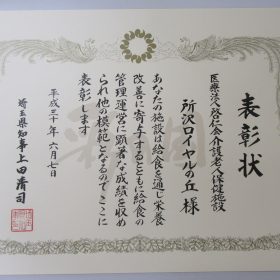 表彰状
医療法人啓仁会介護老人保健施設
所沢ロイヤルの丘 様
あなたの施設は給食を通じ栄養
改善に寄与するとともに給食の
管理運営に顕著な成績を収め
られ他の模範となるのでここに
表彰します
平成三十年六月七日
埼玉県知事上田清司